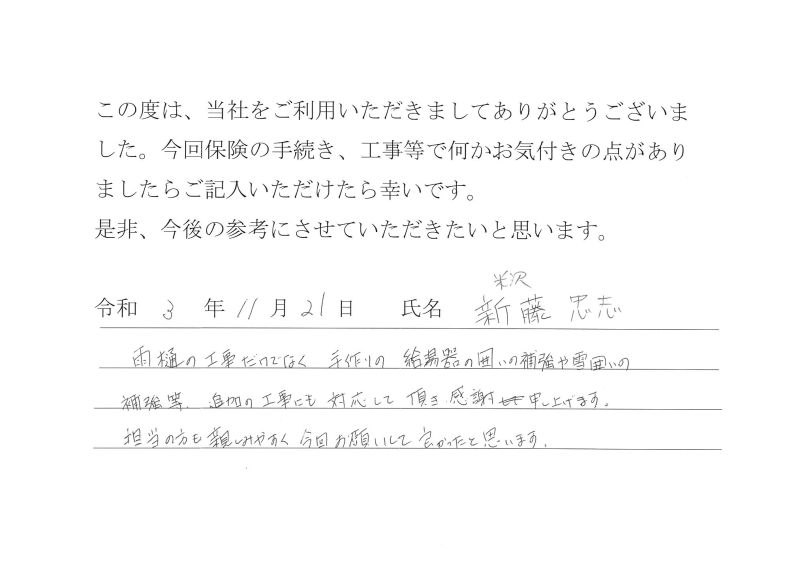 この度は、当社をご利用いただきましてありがとうございま
した。今回保険の手続き、工事等で何かお気付きの点があり
ましたらご記入いただけたら幸いです。
是非、今後の参考にさせていただきたいと思います。
米沢
令和 3 年 11 月 21 日 氏名 新藤 忠志
雨樋の工事だけでなく 手作りの 給湯器の囲いの補強や雪囲いの
補強等、追加の工事にも 対応して 頂き 感謝 申し上げます。
担当の方も 親しみやすく 今回 お願いして 良かったと思います。